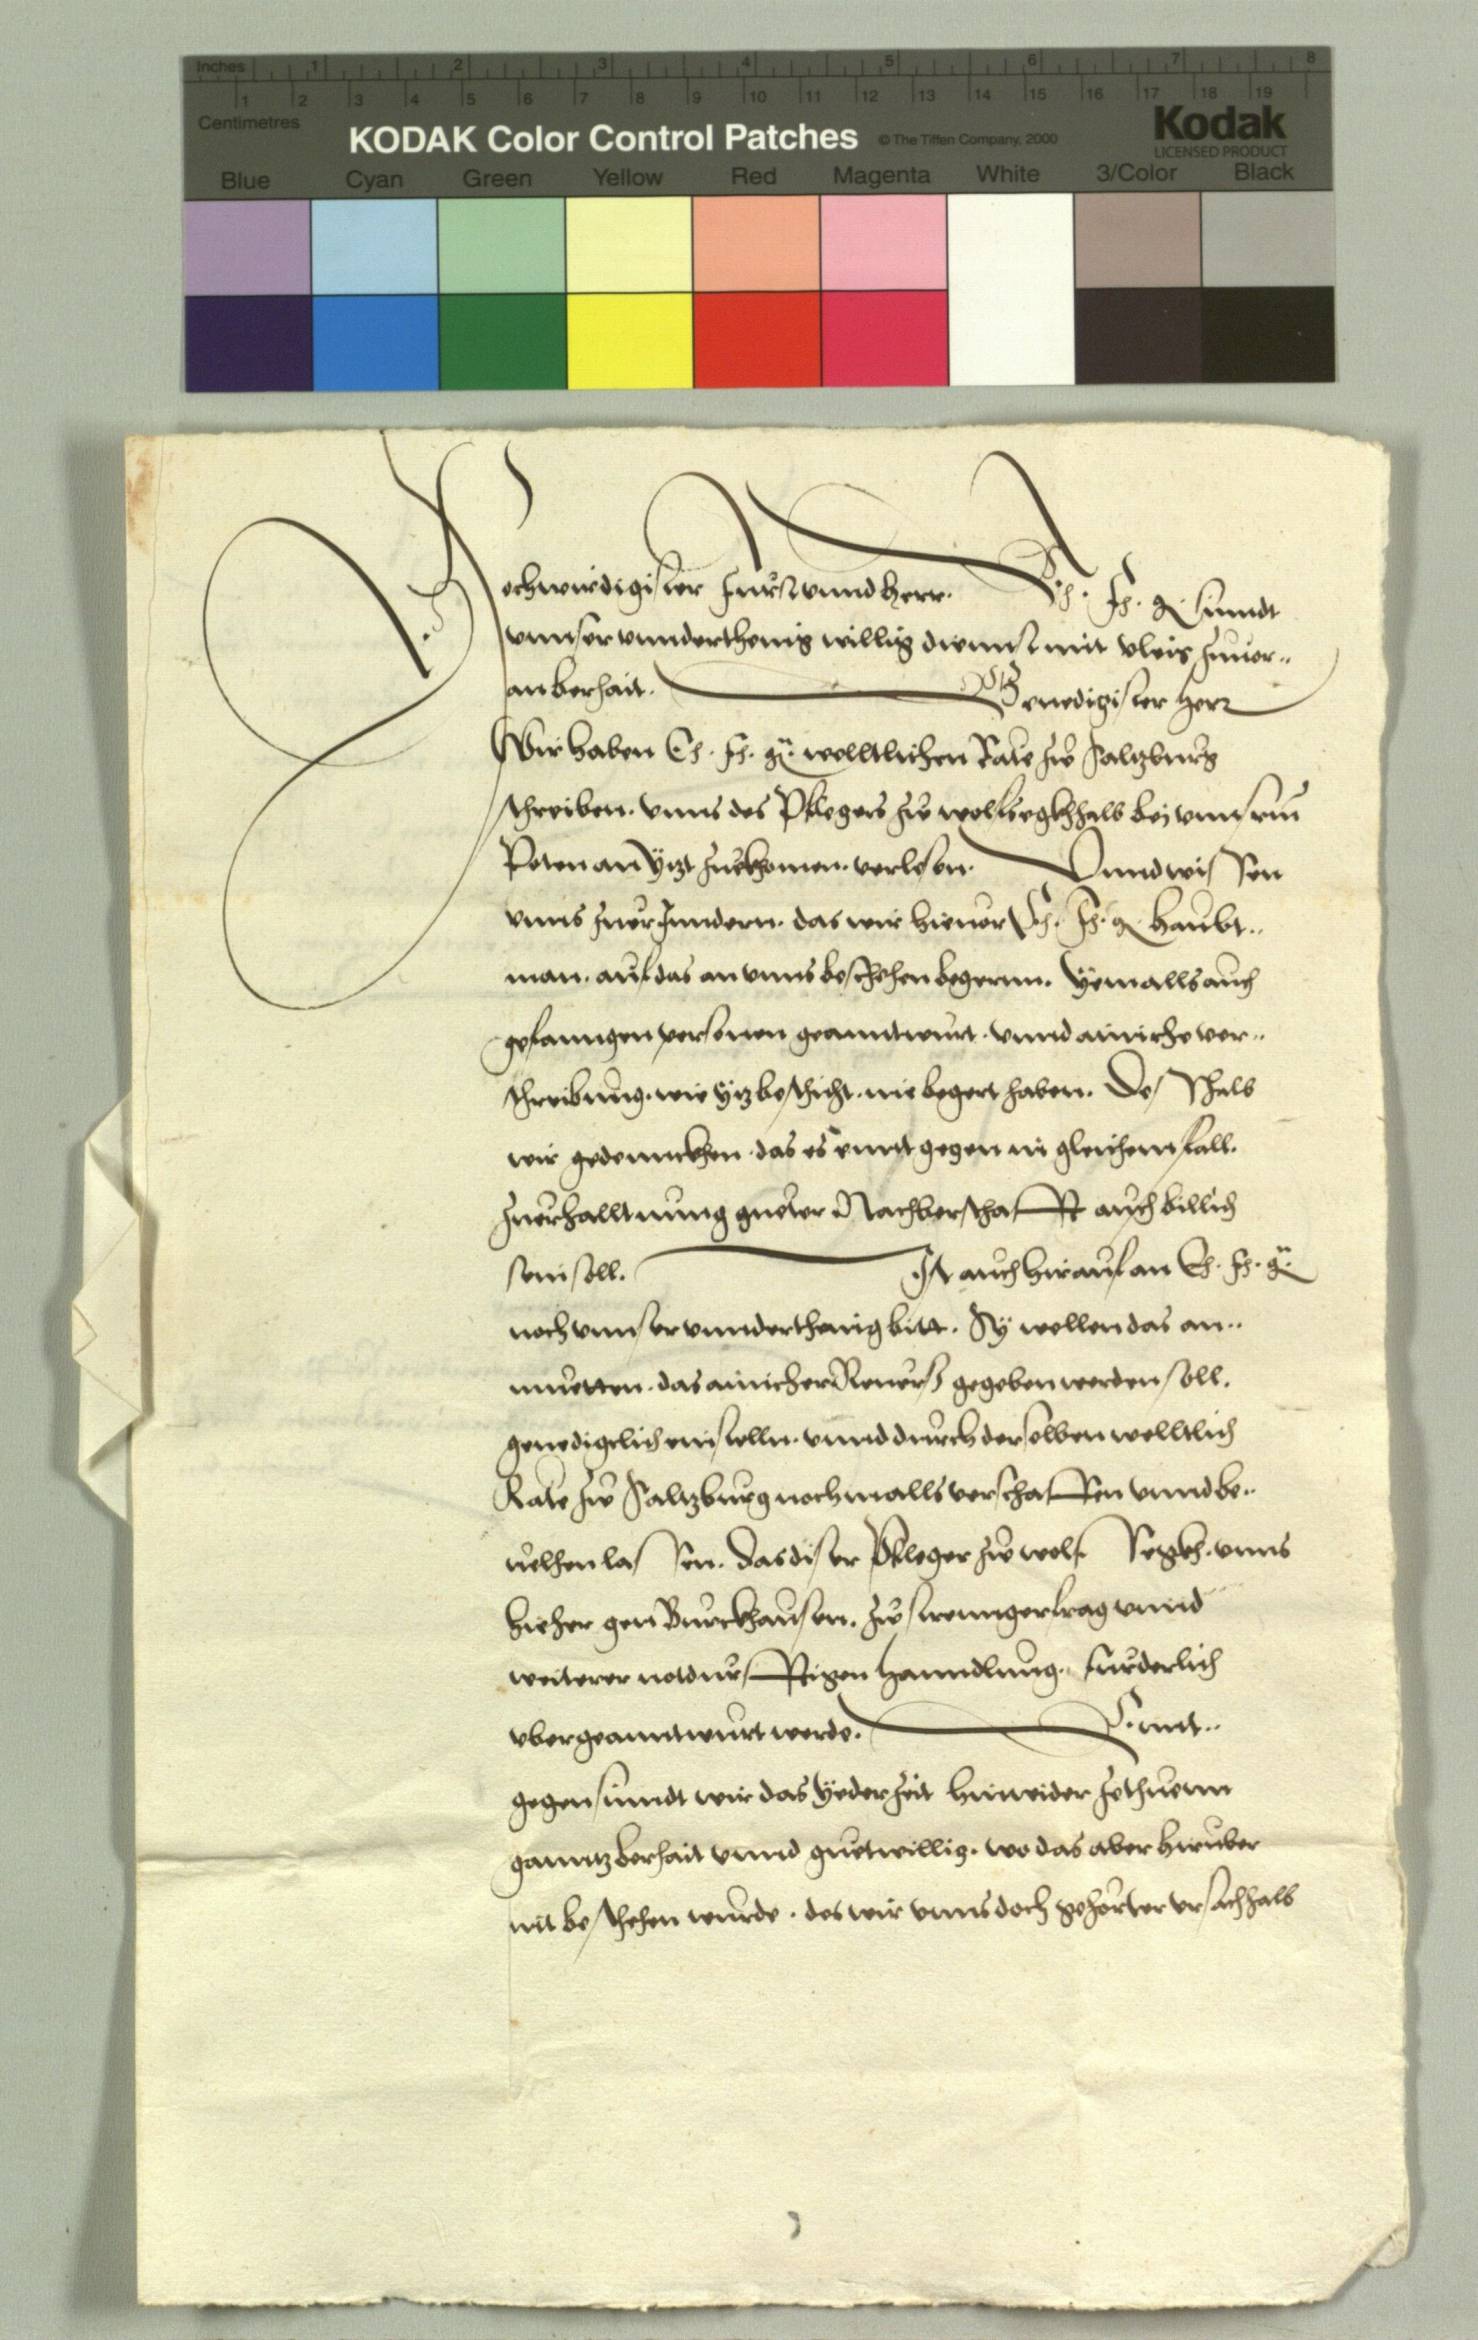 Inches 1 2 3 4 5 6 7 8
1 2 3 4 5 6 7 8 9 10 11 12 13 14 15 16 17 18 19
Centimetres
KODAK Color Control Patches © The Tiffen Company, 2000 Kodak
LICENSED PRODUCT
Blue Cyan Green Yellow Red Magenta White 3/Color Black
Hochwirdigister Fürst vnnd Herr. E. F. g. sinndt
vnnser vnnderthenig willig diennst mit vleis zuuor..
an berhait. Genedigister Herr
Wir haben E. F. g. welltlichen Räte zw Saltzburg
schreiben. vnns des Pflegers zw wolfsegkh halb bej vnnserm
Poten an yetzt zuekhomen. verlesen. Vnnd wissen
vnns zuerInndern. das wir hieuor E. F. g. haubt..
man. auf das an vnns beschehen begernn. Yemalls auch
gefanngen personen geanntwurt. vnnd ainiche ver..
schreibung. wie yetz beschicht. nie begert haben. Desshalb
wir gedennckhen. das es enntgegen in gleichem fall.
zuerhalltnung gueter Nachberschafft auch billich
sein soll. Ist auch hierauf an E. F. g.
noch vnnser vnnderthenig bitt. Sy wellen das an..
muetten. das ainicher Reuers gegeben werden soll.
genedigclich einstelln. vnnd durch derselben welltlich
Räte zw Saltzburg nochmalls verschaffen vnnd be..
uelhen lassen. Das diser Pfleger zw wolfssegkh. vnns
hieher gen Burckhausen. zw strennger frag vnnd
weiterer notdurfftigen hanndlung. furderlich
vbergeanntwurt werde. Ennt..
gegen sinndt wir das yeder zeit hinwider zethuenn
ganntz berhait vnnd guetwillig. wo das aber hieruber
nit beschehen wurde. des wir vnns doch gehorter vrsach halb